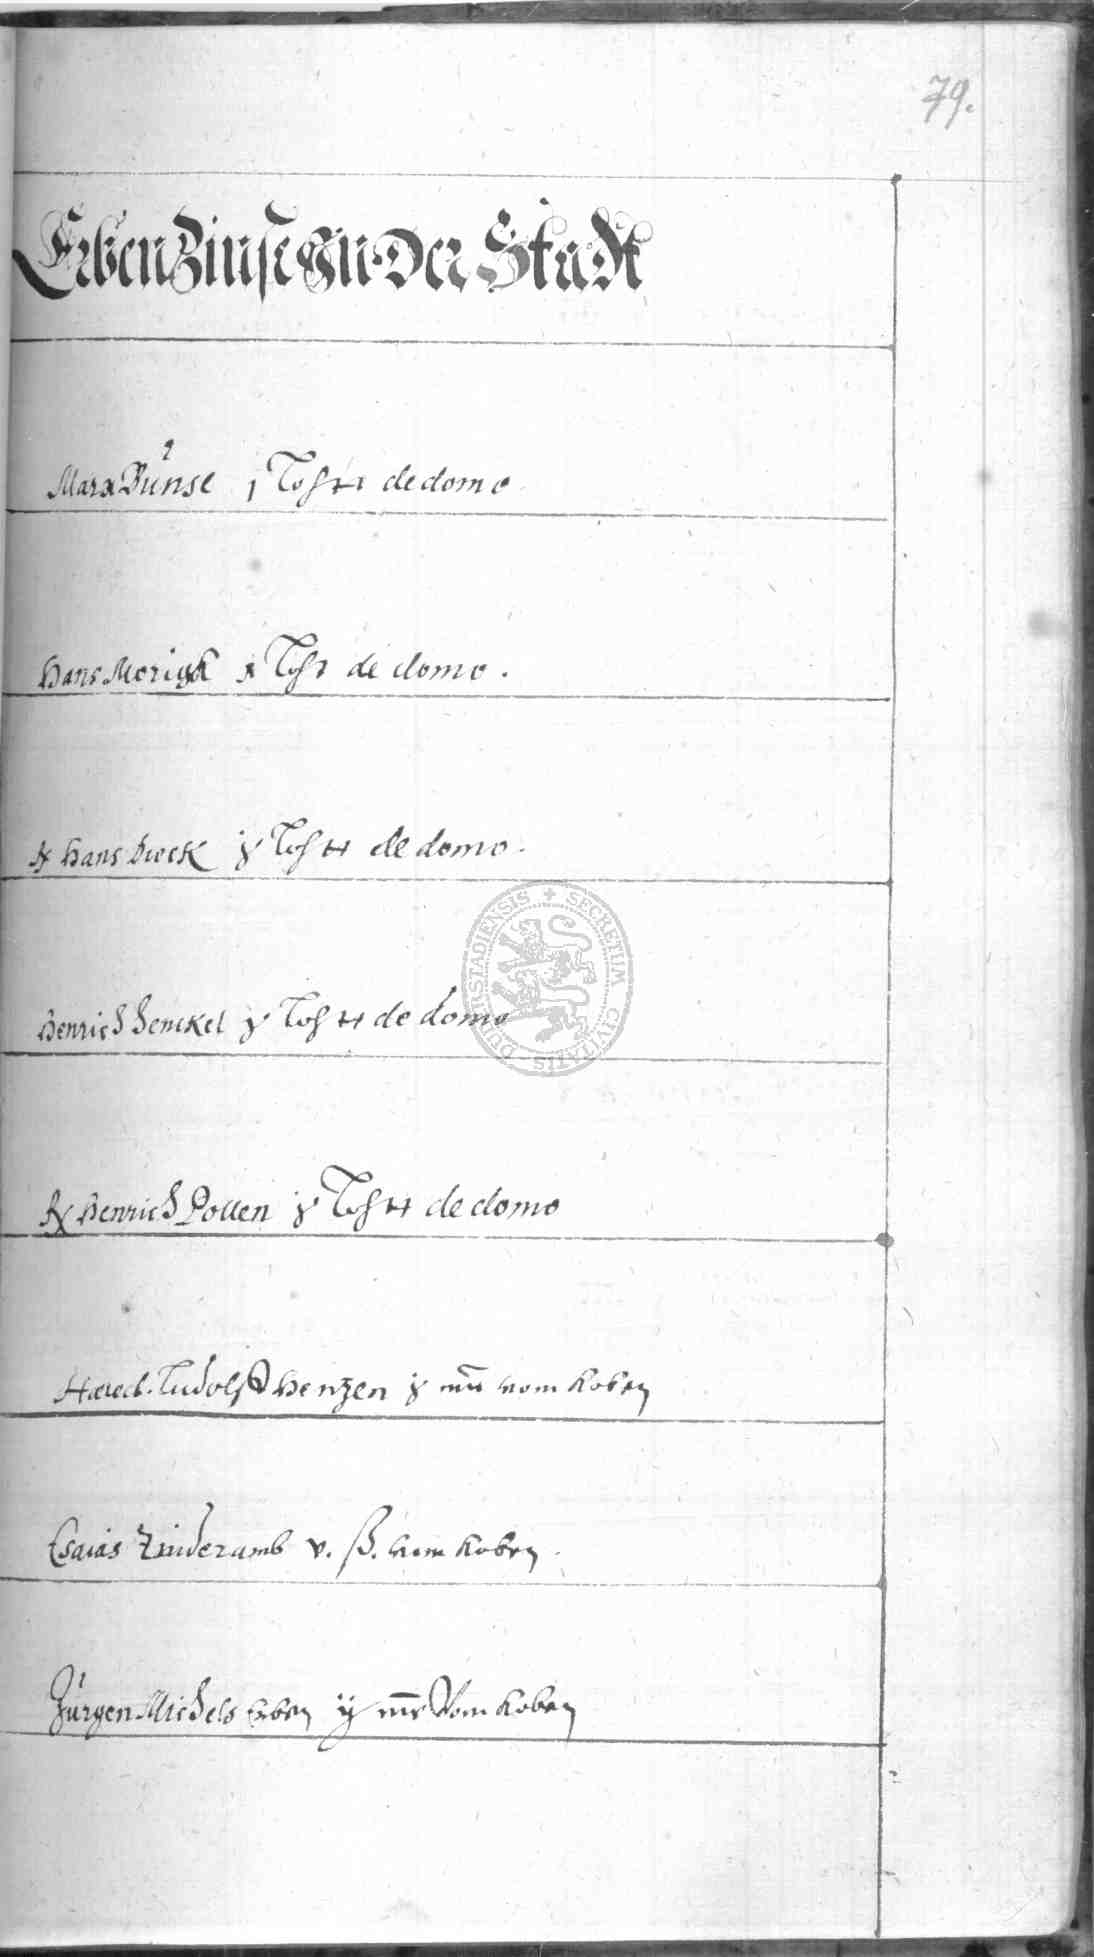 79.
ErbenZinse In Der Stadt
Marx Bunse j Tops de domo
Hans Morigk j Top de domo.
Hans Dvek j de domo.
Henrich Henckel j de domo
Henrich Pollen j de domo
Haered. Ludolff Henzen j mr vom Koben
Esaias Zinderamb v. ß. vom Koben
Jürgen Michels Erben ij mr Vom Koben
SECRETUM CIVITATIS DUDERSTADIENSIS